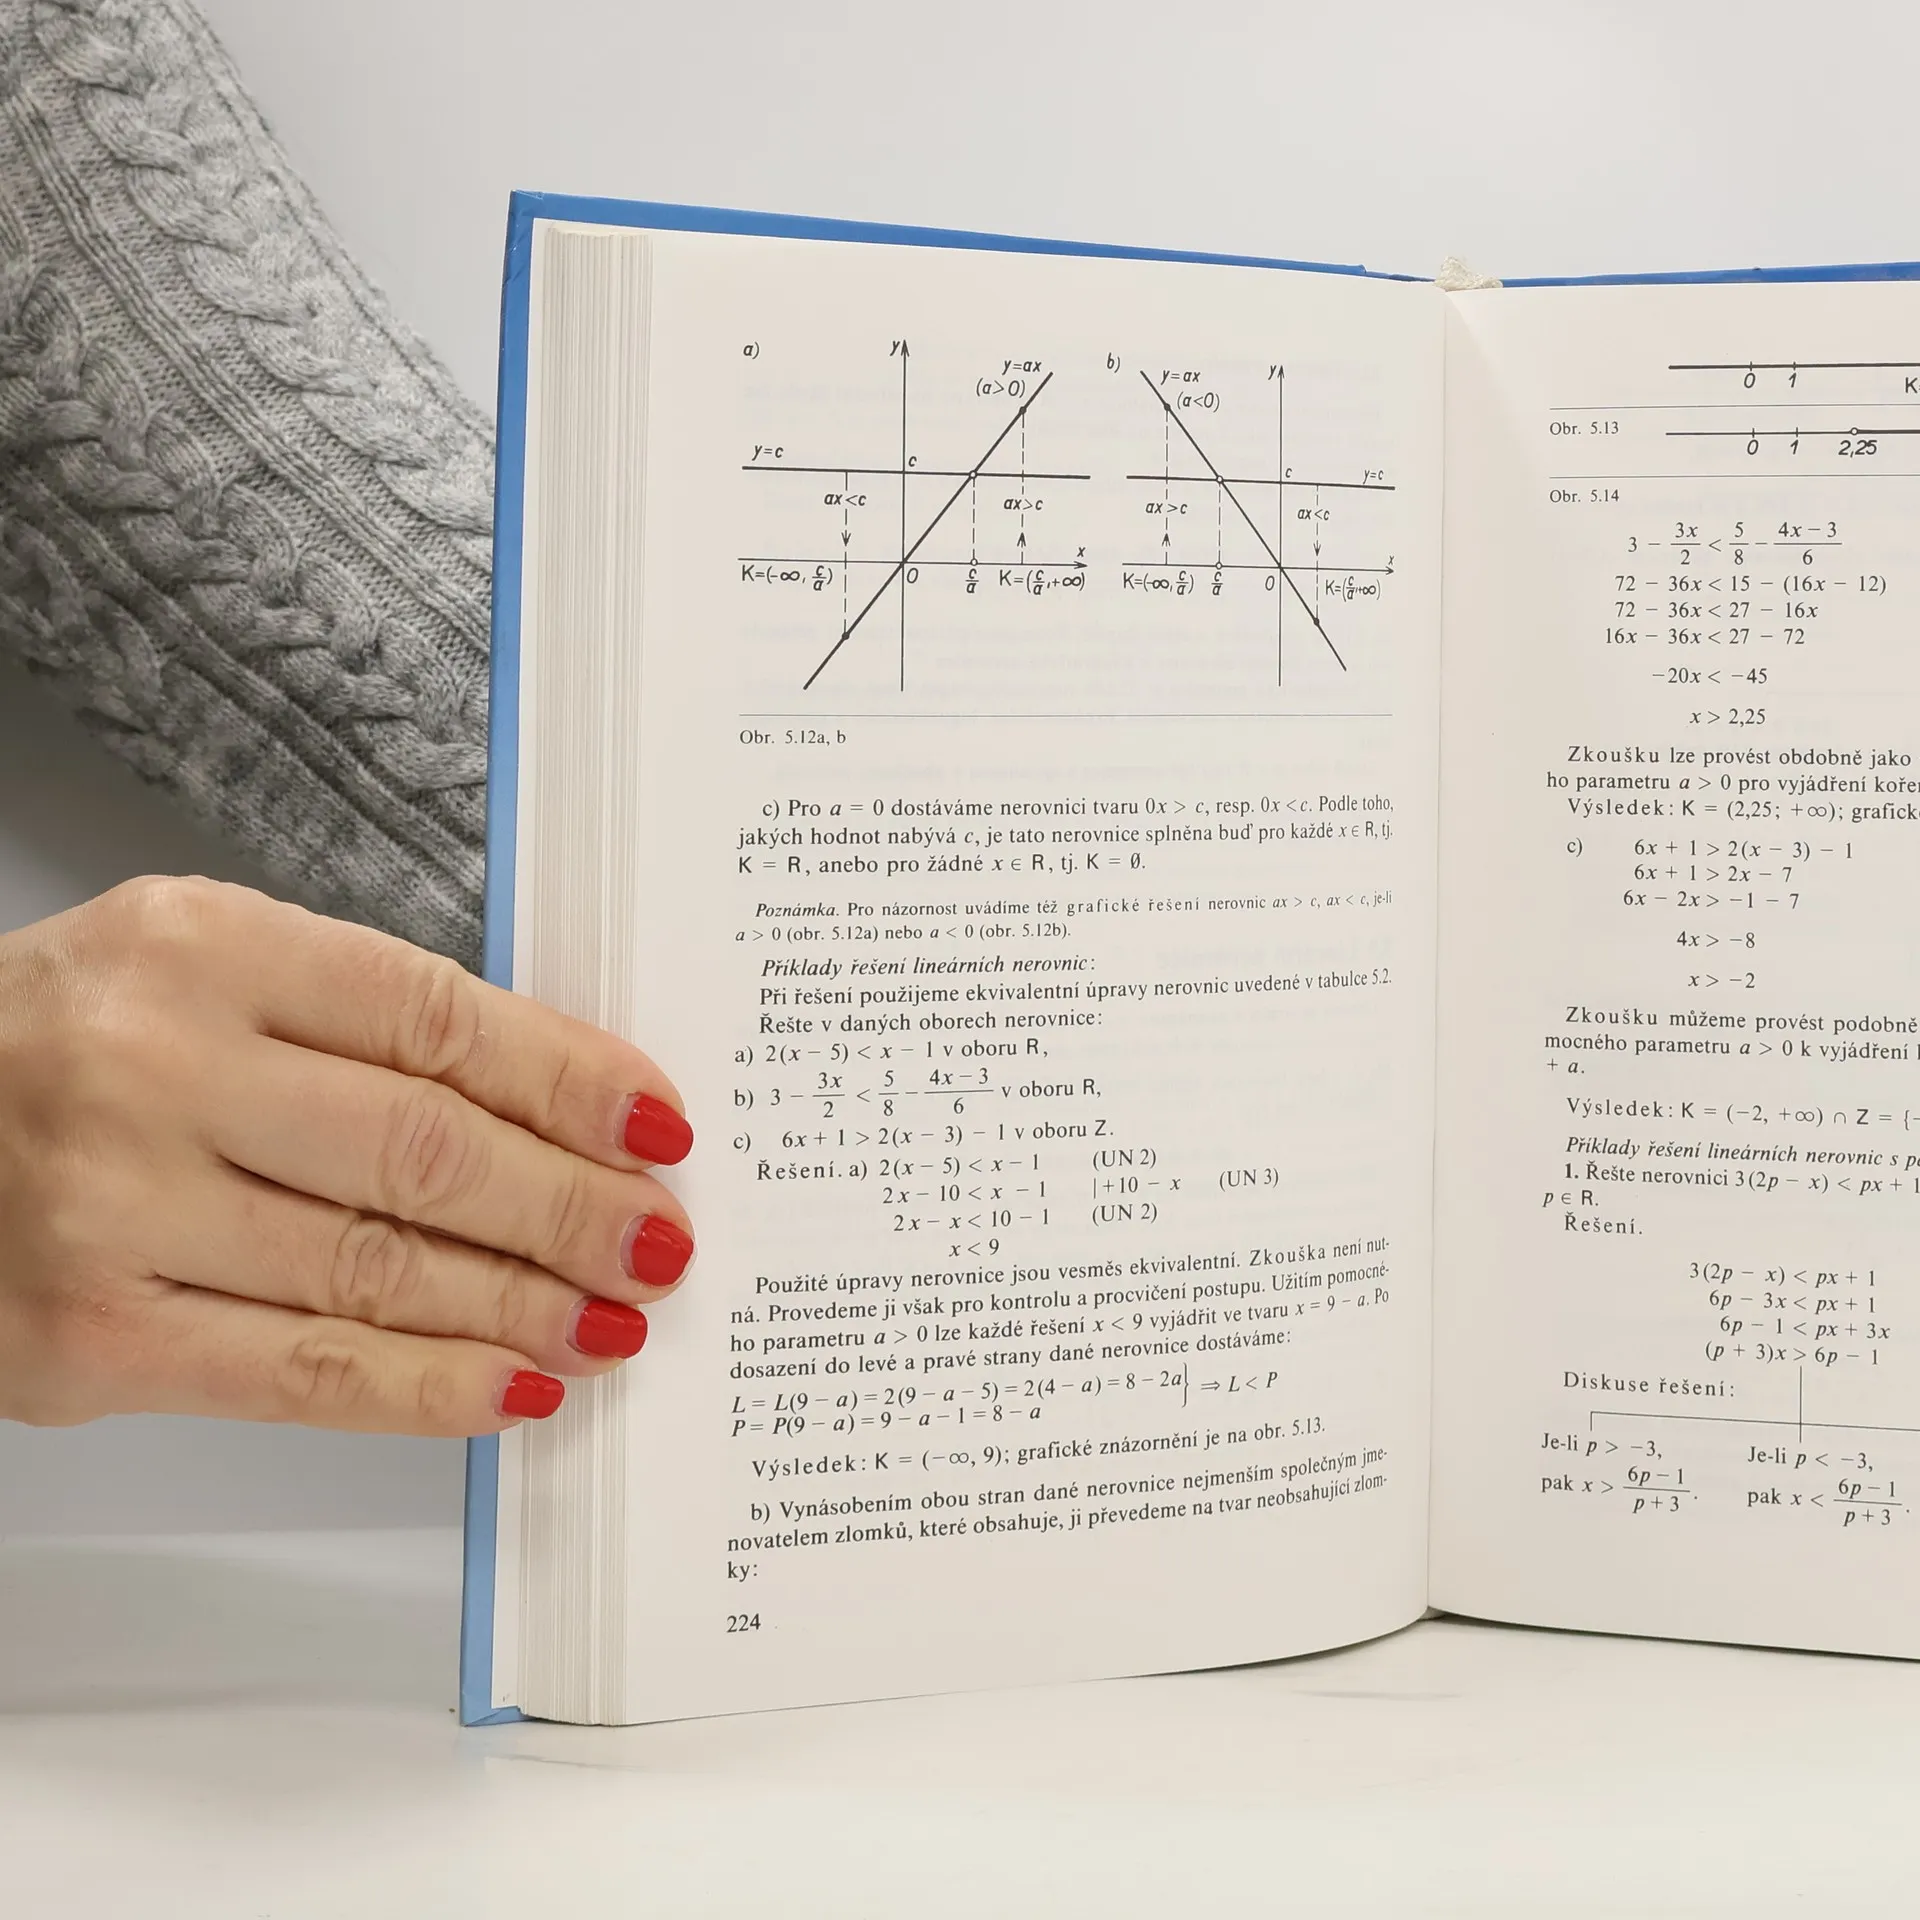 a)
y
y=ax
(a>0)
y=c
c
ax<c
ax>c
x
K=(-∞, c/a)
0
c/a
K=(c/a, +∞)
b)
y=ax
(a<0)
y
c
y=c
ax>c
ax<c
x
K=(-∞, c/a)
c/a
0
K=(c/a, +∞)
Obr. 5.12a, b
c) Pro a = 0 dostáváme nerovnici tvaru 0x > c, resp. 0x < c. Podle toho,
jakých hodnot nabývá c, je tato nerovnice splněna buď pro každé x ∈ R, tj.
K = R, anebo pro žádné x ∈ R, tj. K = Ø.
Poznámka. Pro názornost uvádíme též grafické řešení nerovnic ax > c, ax < c, je-li
a > 0 (obr. 5.12a) nebo a < 0 (obr. 5.12b).
Příklady řešení lineárních nerovnic:
Při řešení použijeme ekvivalentní úpravy nerovnic uvedené v tabulce 5.2.
Řešte v daných oborech nerovnice:
a) 2(x − 5) < x − 1 v oboru R,
b) 3 − 3x/2 < 5/8 − (4x − 3)/6 v oboru R,
c) 6x + 1 > 2(x − 3) − 1 v oboru Z.
Řešení. a) 2(x − 5) < x − 1 (UN 2)
2x − 10 < x − 1 |+10 − x (UN 3)
2x − x < 10 − 1 (UN 2)
x < 9
Použité úpravy nerovnice jsou vesměs ekvivalentní. Zkouška není nut-
ná. Provedeme ji však pro kontrolu a procvičení postupu. Užitím pomocné-
ho parametru a > 0 lze každé řešení x < 9 vyjádřit ve tvaru x = 9 − a. Po
dosazení do levé a pravé strany dané nerovnice dostáváme:
L = L(9 − a) = 2(9 − a − 5) = 2(4 − a) = 8 − 2a} ⇒ L < P
P = P(9 − a) = 9 − a − 1 = 8 − a
Výsledek: K = (−∞, 9); grafické znázornění je na obr. 5.13.
b) Vynásobením obou stran dané nerovnice nejmenším společným jme-
novatelem zlomků, které obsahuje, ji převedeme na tvar neobsahující zlom-
ky:
224
0 1 K
Obr. 5.13
0 1 2,25
Obr. 5.14
3 − 3x/2 < 5/8 − (4x − 3)/6
72 − 36x < 15 − (16x − 12)
72 − 36x < 27 − 16x
16x − 36x < 27 − 72
−20x < −45
x > 2,25
Zkoušku lze provést obdobně jako
ho parametru a > 0 pro vyjádření
Výsledek: K = (2,25; +∞);
c) 6x + 1 > 2(x − 3) − 1
6x + 1 > 2x − 7
6x − 2x > −1 − 7
4x > −8
x > −2
Zkoušku můžeme provést podobně
mocného parametru a > 0 k vyjádření
+ a.
Výsledek: K = (−2, +∞) ∩ Z = {
Příklady řešení lineárních nerovnic s
1. Řešte nerovnici 3(2p − x) < px + 1
p ∈ R.
Řešení.
3(2p − x) < px + 1
6p − 3x < px + 1
6p − 1 < px + 3x
(p + 3)x > 6p − 1
Diskuse řešení:
Je-li p > −3, Je-li p < −3,
pak x > (6p − 1)/(p + 3). pak x < (6p − 1)/(p + 3).